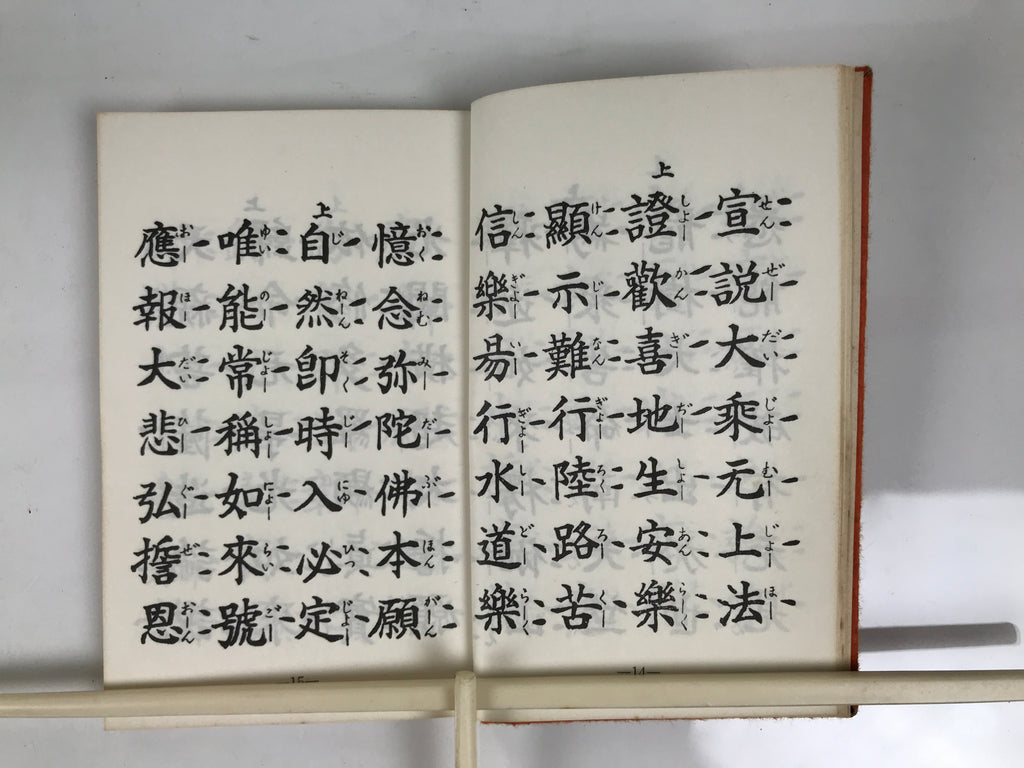 宣説大乘无上法
上
證歡喜地生安樂
顯示難行陸路苦
信樂易行水道樂
—14—
憶念弥陀佛本願
上
自然卽時入必定
唯能常稱如來號
應報大悲弘誓恩
—15—